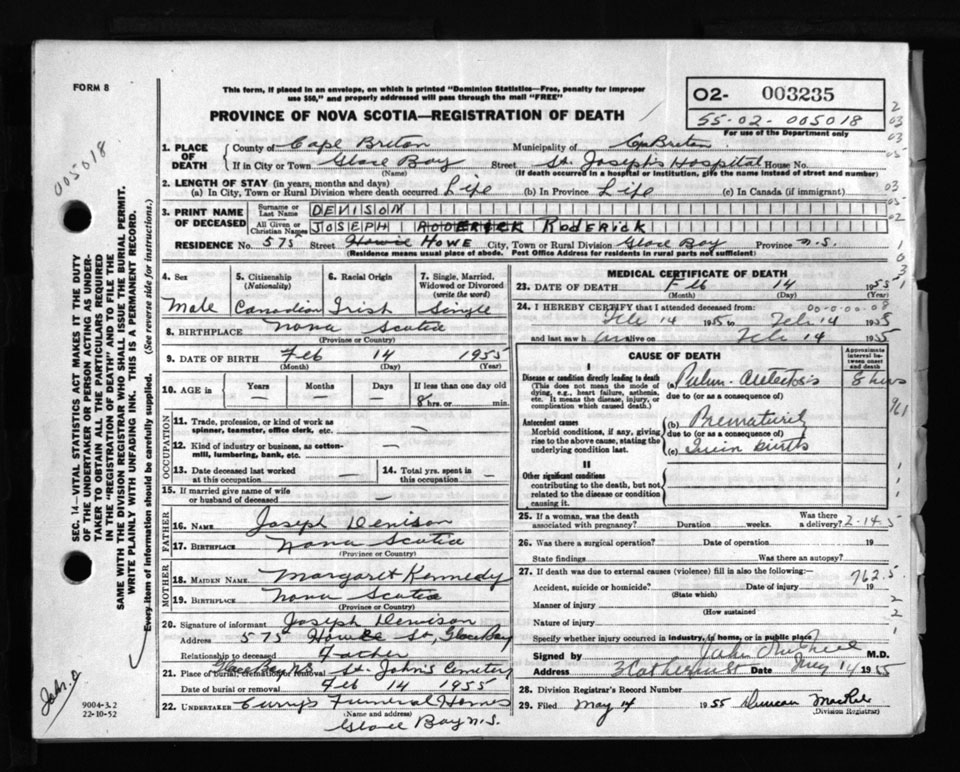 FORM 8
This form, if placed in an envelope, on which is printed "Dominion Statistics—Free, penalty for improper
use $50," and properly addressed will pass through the mail "FREE"
PROVINCE OF NOVA SCOTIA—REGISTRATION OF DEATH
O2- 003235
55-02-005018
For use of the Department only
005018
SEC. 14—VITAL STATISTICS ACT MAKES IT THE DUTY
OF THE UNDERTAKER OR PERSON ACTING AS UNDER-
TAKER TO OBTAIN ALL THE PARTICULARS REQUIRED
IN THE "REGISTRATION OF DEATH" AND TO FILE THE
SAME WITH THE DIVISION REGISTRAR WHO SHALL ISSUE THE BURIAL PERMIT.
WRITE PLAINLY WITH UNFADING INK. THIS IS A PERMANENT RECORD.
Every item of information should be carefully supplied. (See reverse side for instructions.)
1. PLACE OF DEATH County of Cape Breton Municipality of Cape Breton
If in City or Town Glace Bay Street St. Joseph's Hospital House No.
(Name) (If death occurred in a hospital or institution, give the name instead of street and number)
2. LENGTH OF STAY (in years, months and days)
(a) In City, Town or Rural Division where death occurred Life (b) In Province Life (c) In Canada (if immigrant)
3. PRINT NAME OF DECEASED Surname or Last Name DEVISON
All Given or Christian Names JOSEPH Roderick
RESIDENCE No. 575 Street Howie HOWE City, Town or Rural Division Glace Bay Province N.S.
(Residence means usual place of abode. Post Office Address for residents in rural parts not sufficient)
4. Sex
Male
5. Citizenship (Nationality)
Canadian
6. Racial Origin
Irish
7. Single, Married, Widowed or Divorced (write the word)
Single
8. BIRTHPLACE Nova Scotia
(Province or Country)
9. DATE OF BIRTH Feb 14 1955
(Month) (Day) (Year)
10. AGE in Years Months Days If less than one day old
— — — 8 hrs. or min.
OCCUPATION
11. Trade, profession, or kind of work as spinner, teamster, office clerk, etc. —
12. Kind of industry or business, as cotton-mill, lumbering, bank, etc. —
13. Date deceased last worked at this occupation —
14. Total yrs. spent in this occupation —
15. If married give name of wife or husband of deceased —
FATHER
16. NAME Joseph Denison
17. BIRTHPLACE Nova Scotia
(Province or Country)
MOTHER
18. MAIDEN NAME Margaret Kennedy
19. BIRTHPLACE Nova Scotia
(Province or Country)
20. Signature of informant Joseph Denison
Address 575 Howe St, Glace Bay
Relationship to deceased Father
21. Place of burial, cremation or removal Glace Bay N.S. St. John's Cemetery
Date of burial or removal Feb 14 1955
22. UNDERTAKER Curry's Funeral Home
(Name and address)
Glace Bay N.S.
9004-3.2
22-10-52
MEDICAL CERTIFICATE OF DEATH
23. DATE OF DEATH Feb 14 1955
(Month) (Day) (Year)
24. I HEREBY CERTIFY that I attended deceased from:
Feb 14 1955 to Feb 14 1955
and last saw h alive on Feb 14 1955
CAUSE OF DEATH
Approximate interval between onset and death
I
Disease or condition directly leading to death
(This does not mean the mode of dying, e.g., heart failure, asthenia, etc. It means the disease, injury, or complication which caused death.)
(a) Pulm. Atelectosis 8 hrs
due to (or as a consequence of)
Antecedent causes
Morbid conditions, if any, giving rise to the above cause, stating the underlying condition last.
(b) Prematurity
due to (or as a consequence of)
(c) Twin births
II
Other significant conditions
contributing to the death, but not related to the disease or condition causing it.
25. If a woman, was the death associated with pregnancy? Duration weeks. Was there a delivery? 2-14-5
26. Was there a surgical operation? Date of operation 19
State findings Was there an autopsy?
27. If death was due to external causes (violence) fill in also the following:—
762.5
Accident, suicide or homicide? Date of injury 19
(State which)
Manner of injury
(How sustained)
Nature of injury
Specify whether injury occurred in industry, in home, or in public place
Signed by John M.D.
Address Date May 14 1955
28. Division Registrar's Record Number
29. Filed May 14 1955 Duncan MacRae
(Division Registrar)